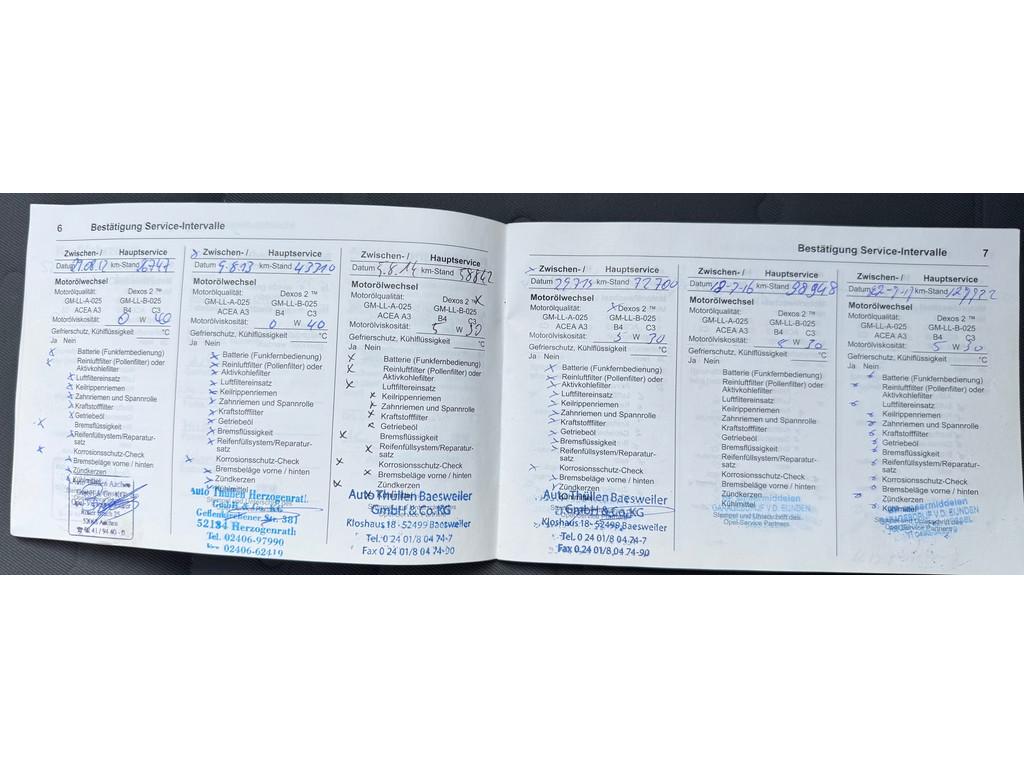 6 Bestätigung Service-Intervalle
Zwischen- / Hauptservice
Datum km-Stand 26747
Motorölwechsel
Motorölqualität: Dexos 2 ™
GM-LL-A-025 GM-LL-B-025
ACEA A3 B4 C3
Motorölviskosität: 0 W 40
Gefrierschutz, Kühlflüssigkeit °C
Ja Nein
Batterie (Funkfernbedienung)
Reinluftfilter (Pollenfilter) oder
Aktivkohlefilter
Luftfiltereinsatz
Keilrippenriemen
Zahnriemen und Spannrolle
Kraftstofffilter
Getriebeöl
Bremsflüssigkeit
Reifenfüllsystem/Reparatur-
satz
Korrosionsschutz-Check
Bremsbeläge vorne / hinten
Zündkerzen
Kühlmittel
x Zwischen- / Hauptservice
Datum 5.8.13 km-Stand 43710
Motorölwechsel
Motorölqualität: Dexos 2 ™
GM-LL-A-025 GM-LL-B-025
ACEA A3 B4 C3
Motorölviskosität: 0 W 40
Gefrierschutz, Kühlflüssigkeit °C
Ja Nein
Batterie (Funkfernbedienung)
Reinluftfilter (Pollenfilter) oder
Aktivkohlefilter
Luftfiltereinsatz
Keilrippenriemen
Zahnriemen und Spannrolle
Kraftstofffilter
Getriebeöl
Bremsflüssigkeit
Reifenfüllsystem/Reparatur-
satz
Korrosionsschutz-Check
Bremsbeläge vorne / hinten
Zündkerzen
Auto Thüllen Herzogenrath
GmbH & Co. KG
Geilenkirchener Str. 381
52134 Herzogenrath
Tel. 02406-97990
Fax 02406-62419
Zwischen- / Hauptservice
Datum 5.8.14 km-Stand 58842
Motorölwechsel
Motorölqualität: Dexos 2 ™ x
GM-LL-A-025 GM-LL-B-025
ACEA A3 B4 C3
Motorölviskosität: 5 W 30
Gefrierschutz, Kühlflüssigkeit °C
Ja Nein
Batterie (Funkfernbedienung)
Reinluftfilter (Pollenfilter) oder
Aktivkohlefilter
Luftfiltereinsatz
Keilrippenriemen
Zahnriemen und Spannrolle
Kraftstofffilter
Getriebeöl
Bremsflüssigkeit
Reifenfüllsystem/Reparatur-
satz
Korrosionsschutz-Check
Bremsbeläge vorne / hinten
Zündkerzen
Auto Thüllen Baesweiler
GmbH & Co.KG
Kloshaus 18 - 52499 Baesweiler
Tel. 0 24 01/8 04 74-7
Fax 0 24 01/8 04 74-90
Bestätigung Service-Intervalle 7
x Zwischen- / Hauptservice
Datum km-Stand 72700
Motorölwechsel
Motorölqualität: x Dexos 2 ™
GM-LL-A-025 GM-LL-B-025
ACEA A3 B4 C3
Motorölviskosität: 5 W 30
Gefrierschutz, Kühlflüssigkeit °C
Ja Nein
Batterie (Funkfernbedienung)
Reinluftfilter (Pollenfilter) oder
Aktivkohlefilter
Luftfiltereinsatz
Keilrippenriemen
Zahnriemen und Spannrolle
Kraftstofffilter
Getriebeöl
Bremsflüssigkeit
Reifenfüllsystem/Reparatur-
satz
Korrosionsschutz-Check
Bremsbeläge vorne / hinten
Zündkerzen
Auto Thüllen Baesweiler
GmbH & Co.KG
Kloshaus 18 - 52499 Baesweiler
Tel. 0 24 01/8 04 74-7
Fax 0 24 01/8 04 74-90
Zwischen- / Hauptservice
Datum 18-7-16 km-Stand 98948
Motorölwechsel
Motorölqualität: Dexos 2 ™
GM-LL-A-025 GM-LL-B-025
ACEA A3 B4 C3
Motorölviskosität: 5 W 30
Gefrierschutz, Kühlflüssigkeit °C
Ja Nein
Batterie (Funkfernbedienung)
Reinluftfilter (Pollenfilter) oder
Aktivkohlefilter
Luftfiltereinsatz
Keilrippenriemen
Zahnriemen und Spannrolle
Kraftstofffilter
Getriebeöl
Bremsflüssigkeit
Reifenfüllsystem/Reparatur-
satz
Korrosionsschutz-Check
Bremsbeläge vorne / hinten
Zündkerzen
Kühlmittel
Stempel und Unterschrift des
Opel Service Partners
Zwischen- / Hauptservice
Datum 22-7-17 km-Stand
Motorölwechsel
Motorölqualität: Dexos 2 ™
GM-LL-A-025 GM-LL-B-025
ACEA A3 B4 C3
Motorölviskosität: 5 W 30
Gefrierschutz, Kühlflüssigkeit °C
Ja Nein
Batterie (Funkfernbedienung)
Reinluftfilter (Pollenfilter) oder
Aktivkohlefilter
Luftfiltereinsatz
Keilrippenriemen
Zahnriemen und Spannrolle
Kraftstofffilter
Getriebeöl
Bremsflüssigkeit
Reifenfüllsystem/Reparatur-
satz
Korrosionsschutz-Check
Bremsbeläge vorne / hinten
Zündkerzen
Kühlmittel